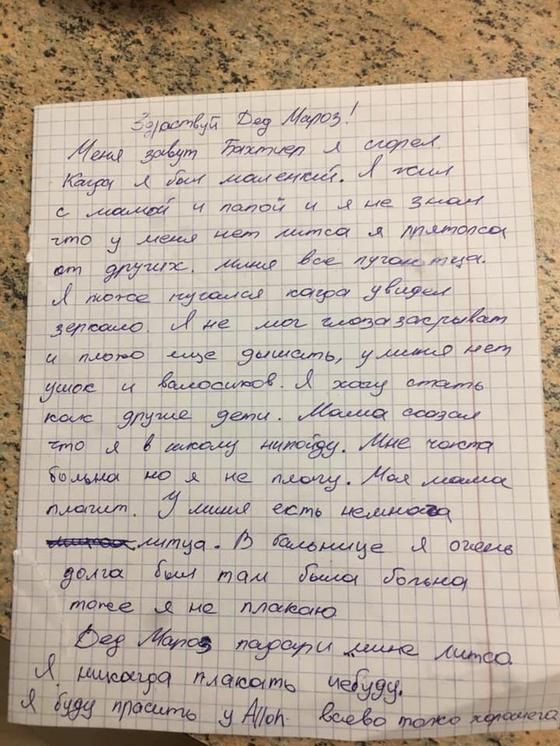 Здраствуй Дед Мароз!
Меня завут Бахтиер я сгорел.
Кагда я был маленкий. Я жил
с мамой и папой и я не знал
что у меня нет литса я прятолса
от других. миня все пугаютца.
Я тоже пугался кагда увидел
зеркало. Я не мог глоза закрыват
и плохо еще дышать, у миня нет
ушок и валосиков. Я хачу стать
как другие дети. Мама сказал
что я в школу нипойду. Мне часта
больна но я не плачу. Моя мама
плачит. У миня есть немнога
литца. В бальнице я очень
долга был там была больна
тоже я не плакаю
Дед Мароз падари мине литсо.
Я никагда плакать небуду.
Я буду прасить у Alloh всево токо харошега